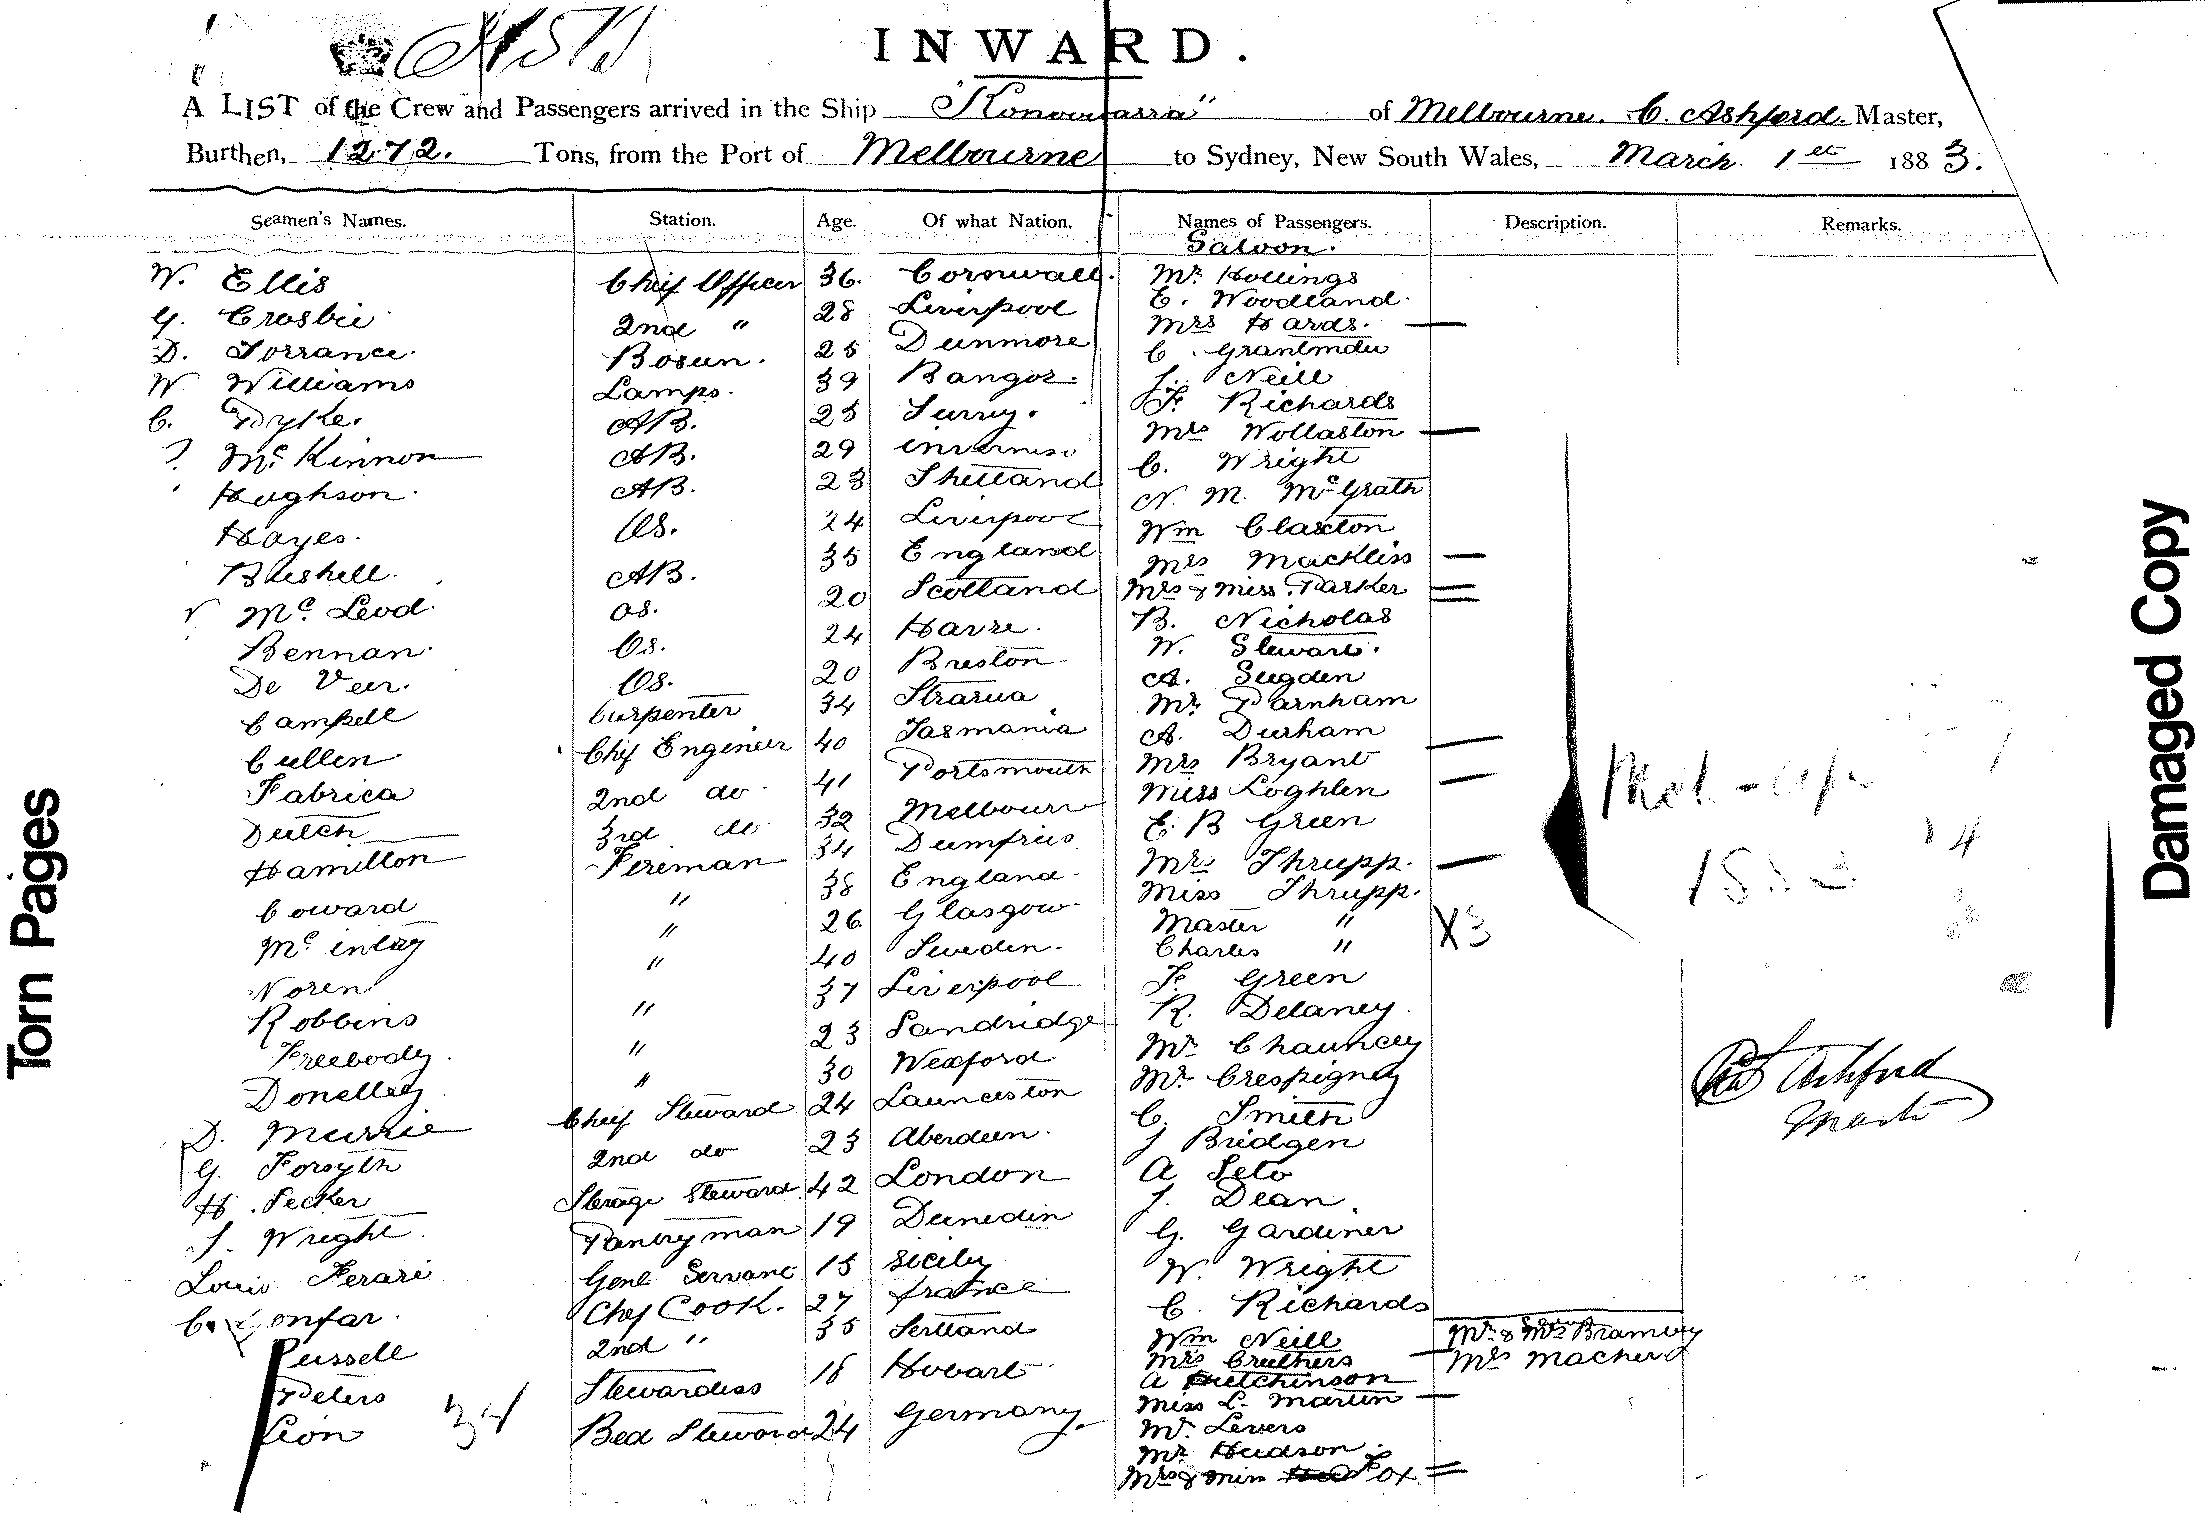 INWARD.
A LIST of the Crew and Passengers arrived in the Ship "Konowarra" of Melbourne. C. Ashford. Master,
Burthen, 1272. Tons, from the Port of Melbourne to Sydney, New South Wales, March 1st 1883.
Seamen's Names. Station. Age. Of what Nation. Names of Passengers. Description. Remarks.
Saloon.
W. Ellis Chief Officer 36. Cornwall. Mr. Hollings
G. Crosbie 2nd " 28 Liverpool E. Woodland.
D. Torrance. Bosun. 25 Dunmore Mrs Hards.
W Williams Lamps. 39 Bangor. C.
C. Dyke. AB. 25 Surry. J. Neill
McKinnon AB. 29 inverness F. Richards
Hughson. AB. 23 Shetland Mrs Wollaston
Hayes. OS. 24 Liverpool C. Wright
Bushell. AB. 35 England N. M. McGrath
McLeod. OS. 20 Scotland Wm Claxton
Bennan. OS. 24 Havre. Mrs Mackliss
De Veer. OS. 20 Preston Mrs & Miss. Parker
Campell Carpenter 34 B. Nicholas
Cullen Chif Engineer 40 Tasmania W. Stewart.
Fabrica 2nd do 41 Portsmouth A. Sugden
Dutch 3rd do 32 Melbourn Mr. Parnham
Hamilton Fireman 34 Dumfries A. Durham
Coward " 38 England Mrs Bryant
McInlay " 26 Glasgow Miss Loghlen
Noren " 40 Sweden. E. B Green
Robbins " 37 Liverpool Mrs Thrupp.
Freebody. " 23 Sandridge Miss Thrupp.
Donelley " 30 Wexford Master "
D. Murrie Chief Steward 24 Launceston Charles " X3
G. Forsyth 2nd do 23 Aberdeen. F. Green
H. Secker Sterage Steward 42 London R. Delaney
J. Wright Pantryman 19 Dunedin Mr. Chauncey
Louis Ferari Genl Servant 15 Sicily Mr. Crespigney
C. Chef Cook. 27 france C. Smith
Russell 2nd " 35 J Bridgen
Peters Stewardess 18 Hobart A Seto
Lion 34 Bed Steward 24 Germany J. Dean
G. Gardiner
W. Wright
C. Richards
Wm Neill Mr. & Mrs Bramley
Mrs Cruthers Mrs Macherd
A Hutchinson
Miss L. Martin
Mr. Levers
Mr. Hudson
Mrs & Miss Fox
Ashford
Master
Torn Pages
Damaged Copy